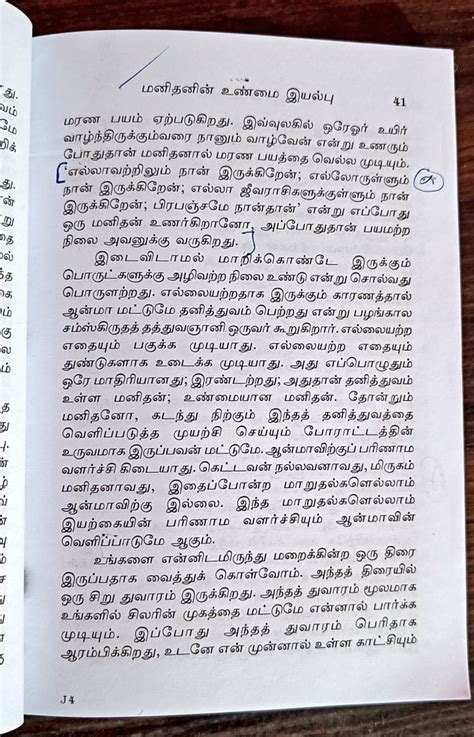 மனிதனின் உண்மை இயல்பு 41
மரண பயம் ஏற்படுகிறது. இவ்வுலகில் ஒரேஓர் உயிர்
வாழ்ந்திருக்கும்வரை நானும் வாழ்வேன் என்று உணரும்
போதுதான் மனிதனால் மரண பயத்தை வெல்ல முடியும்.
'எல்லாவற்றிலும் நான் இருக்கிறேன்; எல்லோருள்ளும்
நான் இருக்கிறேன்; எல்லா ஜீவராசிகளுக்குள்ளும் நான்
இருக்கிறேன்; பிரபஞ்சமே நான்தான்' என்று எப்போது
ஒரு மனிதன் உணர்கிறானோ, அப்போதுதான் பயமற்ற
நிலை அவனுக்கு வருகிறது.
இடைவிடாமல் மாறிக்கொண்டே இருக்கும்
பொருட்களுக்கு அழிவற்ற நிலை உண்டு என்று சொல்வது
பொருளற்றது. எல்லையற்றதாக இருக்கும் காரணத்தால்
ஆன்மா மட்டுமே தனித்துவம் பெற்றது என்று பழங்கால
சம்ஸ்கிருதத் தத்துவஞானி ஒருவர் கூறுகிறார். எல்லையற்ற
எதையும் பகுக்க முடியாது. எல்லையற்ற எதையும்
துண்டுகளாக உடைக்க முடியாது. அது எப்பொழுதும்
ஒரே மாதிரியானது; இரண்டற்றது; அதுதான் தனித்துவம்
உள்ள மனிதன்; உண்மையான மனிதன். தோன்றும்
மனிதனோ, கடந்து நிற்கும் இந்தத் தனித்துவத்தை
வெளிப்படுத்த முயற்சி செய்யும் போராட்டத்தின்
உருவமாக இருப்பவன் மட்டுமே. ஆன்மாவிற்குப் பரிணாம
வளர்ச்சி கிடையாது. கெட்டவன் நல்லவனாவது, மிருகம்
மனிதனாவது, இதைப்போன்ற மாறுதல்களெல்லாம்
ஆன்மாவிற்கு இல்லை. இந்த மாறுதல்கலெல்லாம்
இயற்கையின் பரிணாம வளர்ச்சியும் ஆன்மாவின்
வெளிப்பாடுமே ஆகும்.
உங்களை என்னிடமிருந்து மறைக்கின்ற ஒரு திரை
இருப்பதாக வைத்துக் கொள்வோம். அந்தத் திரையில்
ஒரு சிறு துவாரம் இருக்கிறது. அந்தத் துவாரம் மூலமாக
உங்களில் சிலரின் முகத்தை மட்டுமே என்னால் பார்க்க
முடியும். இப்போது அந்தத் துவாரம் பெரிதாக
ஆரம்பிக்கிறது, உடனே என் முன்னால் உள்ள காட்சியும்
J4